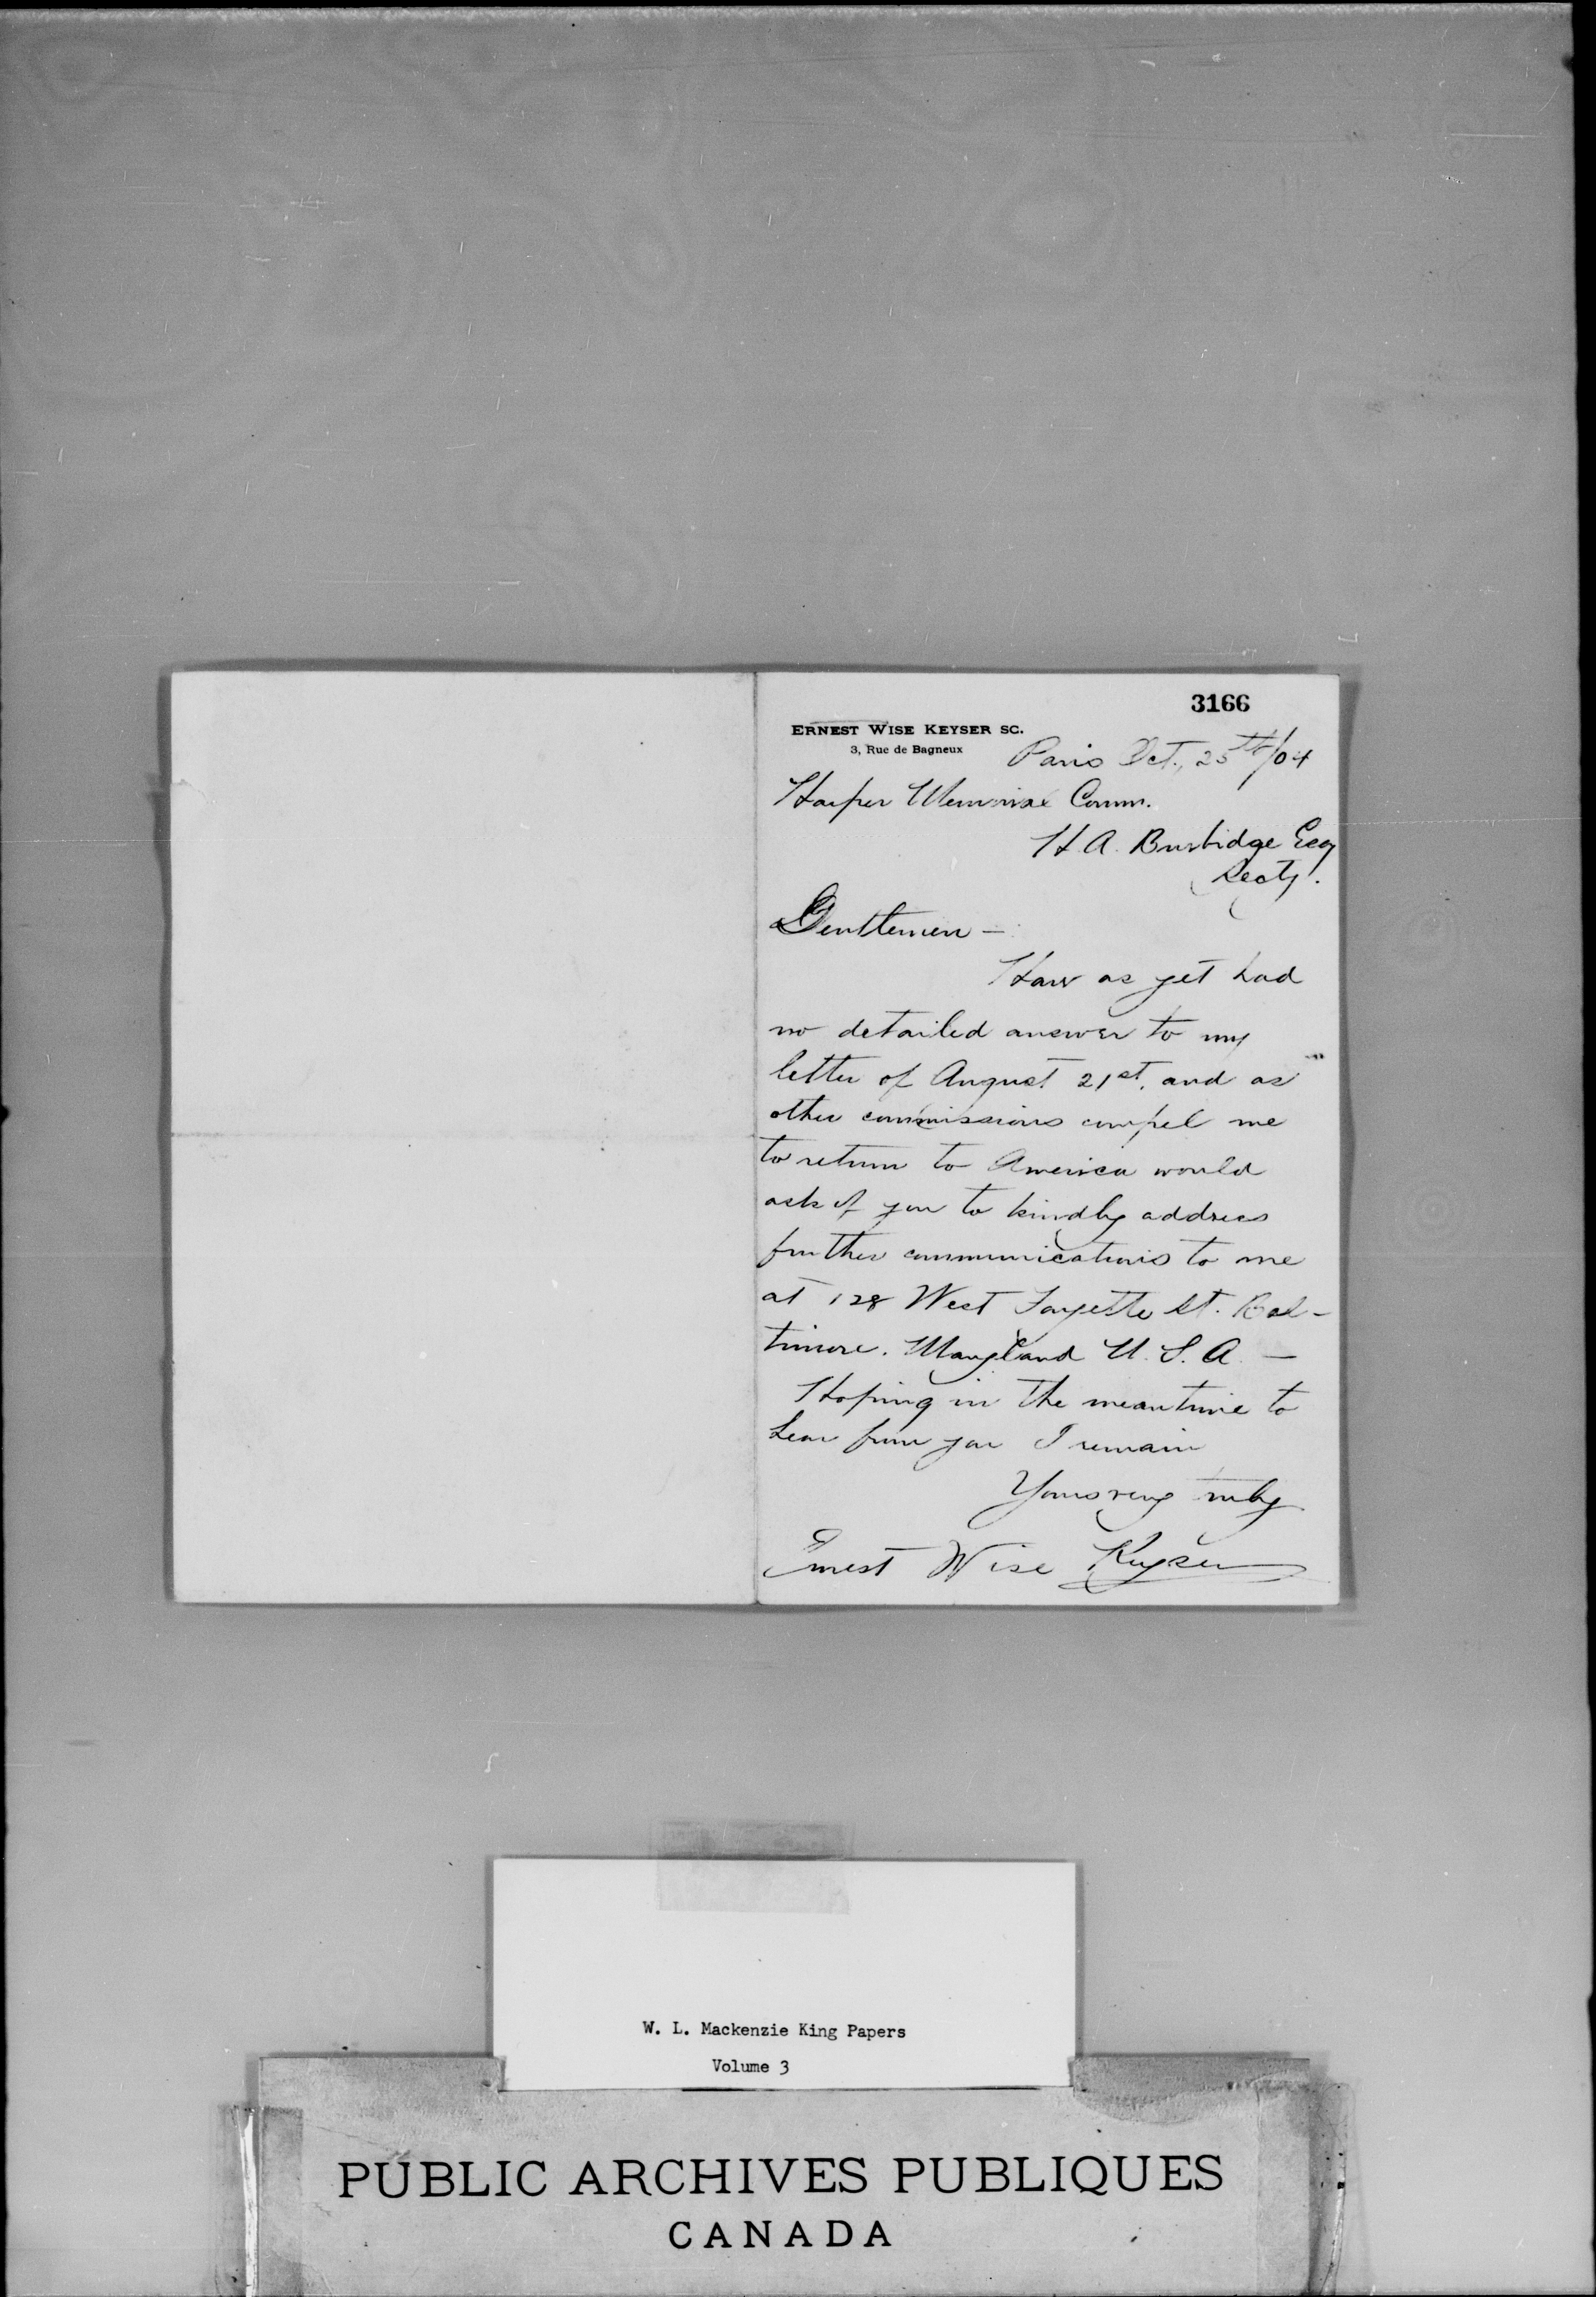 3166
ERNEST WISE KEYSER SC.
3, Rue de Bagneux
Paris Oct., 25th/04
Harper Memorial Comm.
H. A. Burbidge Esq
Secty.
Gentlemen —
Have as yet had
no detailed answer to my
letter of August 21st. and as
other commissions compel me
to return to America would
ask of you to kindly address
further communications to me
at 128 West Fayette St. Bal-
timore. Maryland U. S. A. —
Hoping in the meantime to
hear from you I remain
Yours very truly
Ernest Wise Keyser
W. L. Mackenzie King Papers
Volume 3
PUBLIC ARCHIVES PUBLIQUES
CANADA